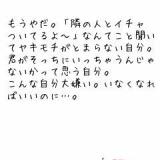 もうやだ。「隣の人とイチャ
ついてるよ～」なんてこと聞い
てヤキモチがとまらない自分。
君がそっちにいっちゃうんじゃ
ないかって思う自分。
こんな自分大嫌い。いなくなれ
ばいいのに…。